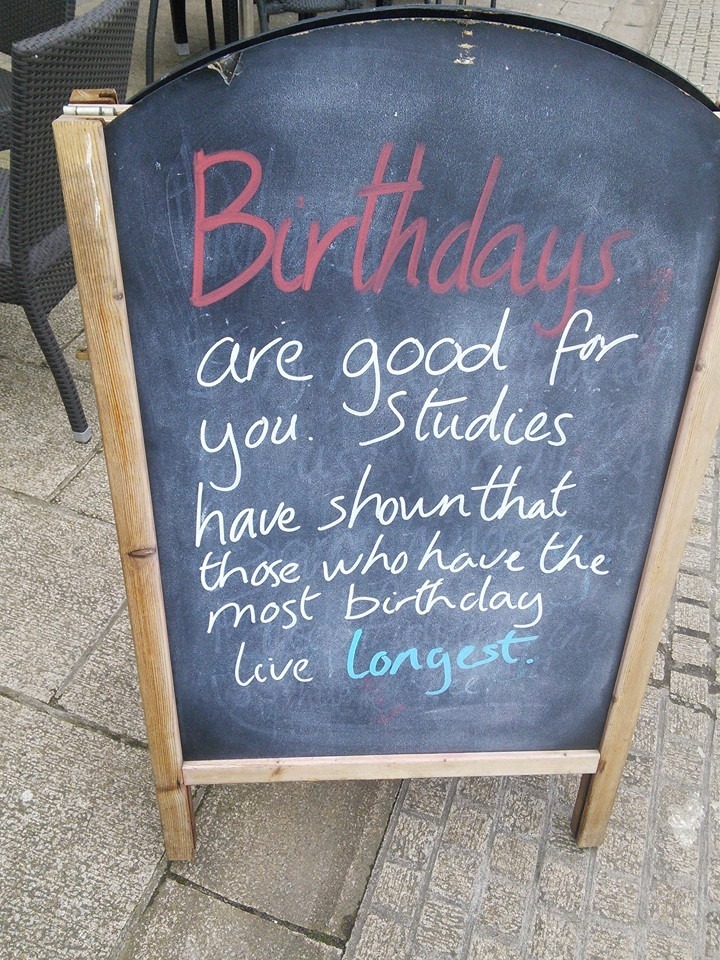 Birthdays
are good for
you. Studies
have shown that
those who have the
most birthday
live longest.